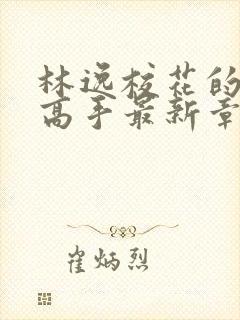 林逸校花的
高手最新章
崔炳烈